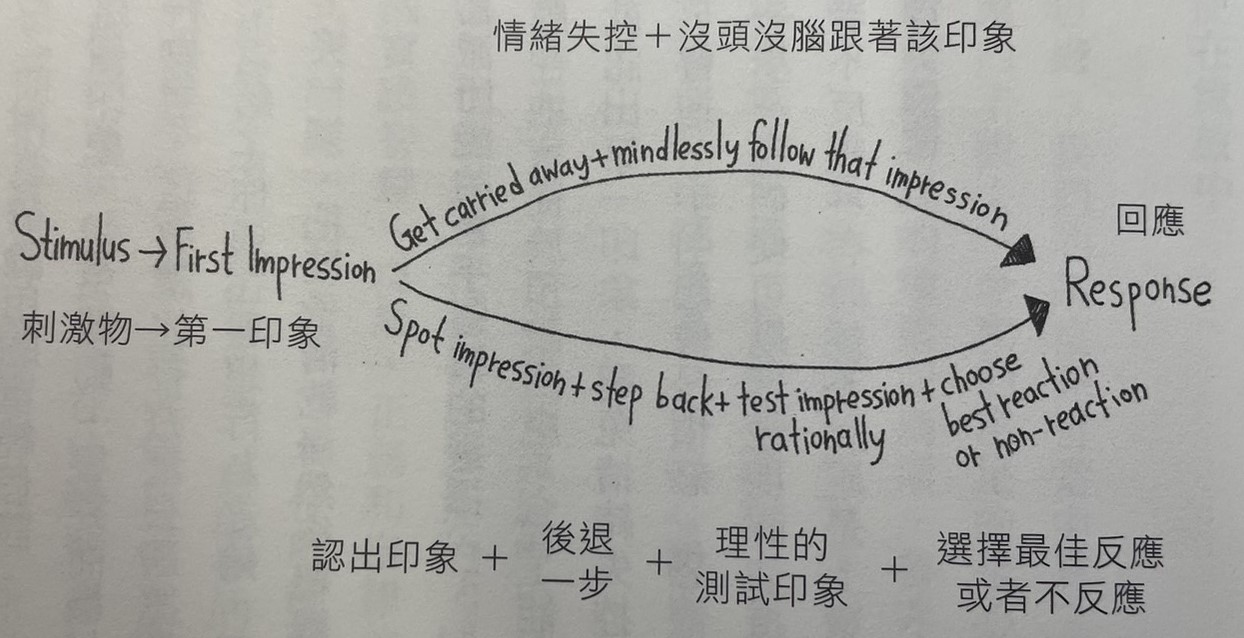 情緒失控＋沒頭沒腦跟著該印象
Get carried away+mindlessly follow that impression
Stimulus → First Impression
刺激物→第一印象
回應
Response
Spot impression + step back + test impression + choose
rationally
best reaction
or non-reaction
認出印象 ＋ 後退 ＋ 理性的 ＋ 選擇最佳反應
一步 測試印象 或者不反應